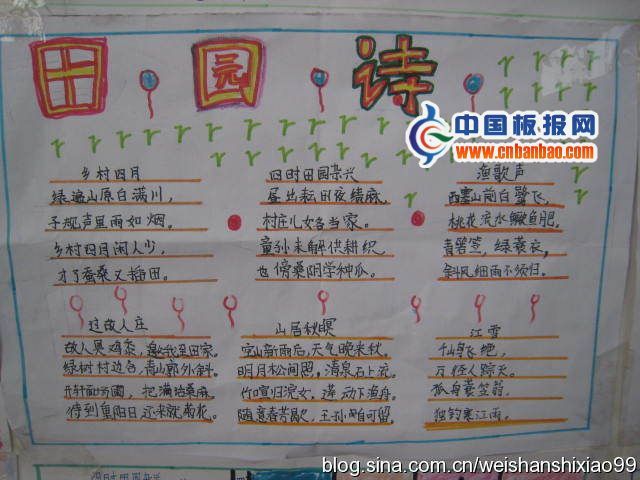 田园诗
中国板报网
www.cnbanbao.com
乡村四月
绿遍山原白满川,
子规声里雨如烟。
乡村四月闲人少,
才了蚕桑又插田。
四时田园杂兴
昼出耘田夜绩麻,
村庄儿女各当家。
童孙未解供耕织,
也傍桑阴学种瓜。
渔歌声
西塞山前白鹭飞,
桃花流水鳜鱼肥,
青箬笠,绿蓑衣,
斜风细雨不须归。
过故人庄
故人具鸡黍,邀我至田家。
绿树村边合,青山郭外斜。
开轩面场圃,把酒话桑麻。
待到重阳日,还来就菊花。
山居秋暝
空山新雨后,天气晚来秋。
明月松间照,清泉石上流。
竹喧归浣女,莲动下渔舟。
随意春芳歇,王孙自可留。
江雪
万径人踪灭。
孤舟蓑笠翁,
独钓寒江雨。
blog.sina.com.cn/weishanshixiao99